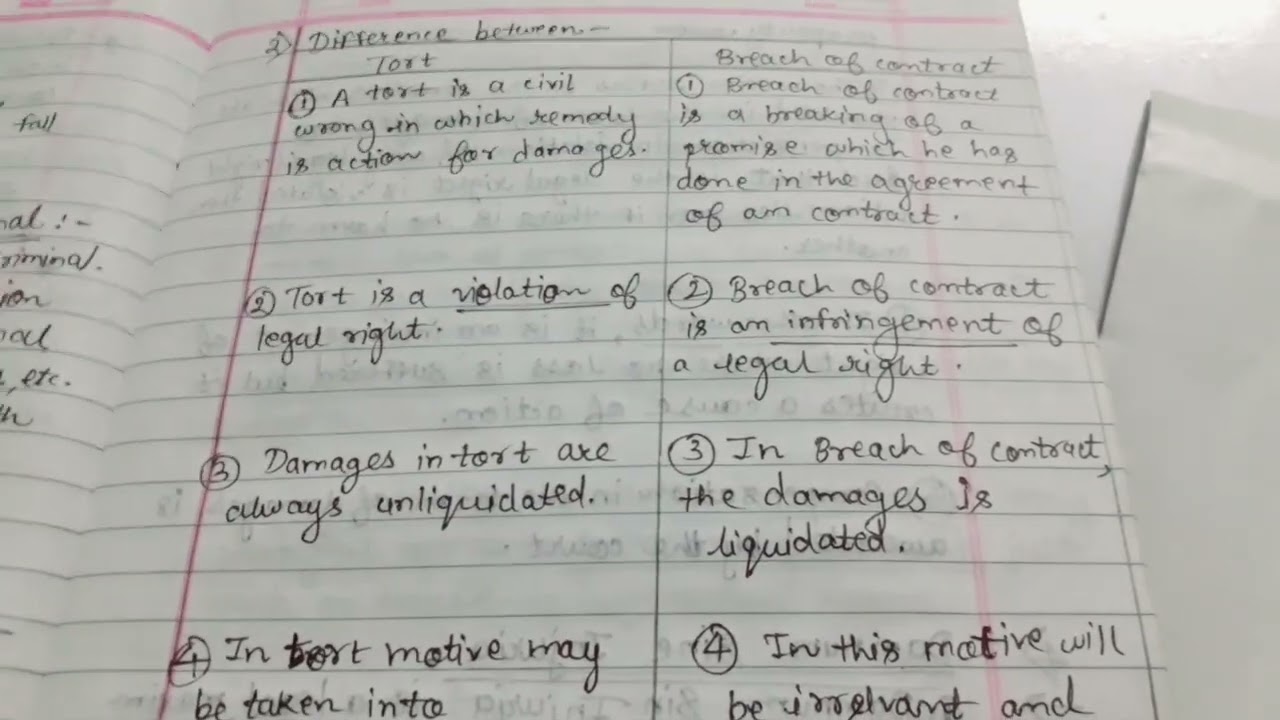 fall
nal :-
riminal.
ion
nal
, etc.
th
2) Difference between -
Tort
① A tort is a civil
wrong in which remedy
is action for damages.
② Tort is a violation of
legal right.
③ Damages in tort are
always unliquidated.
④ In tort motive may
be taken into
Breach of contract
① Breach of contract
is a breaking of a
promise which he has
done in the agreement
of am contract.
② Breach of contract
is an infringement of
a legal right.
③ In Breach of contract,
the damages Is
liquidated.
④ In this motive will
be irrelvant and